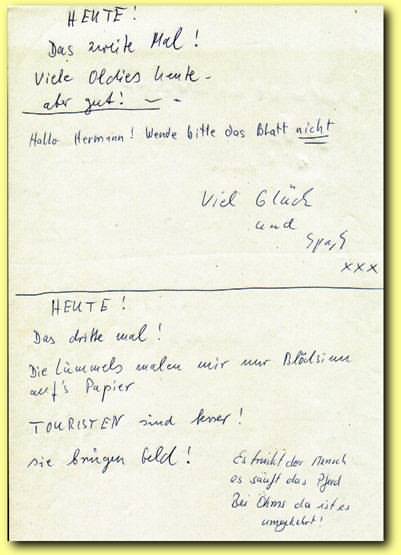 HEUTE!
Das zweite Mal!
Viele Oldies heute –
aber gut! – –
Hallo Hermann! Wende bitte das Blatt nicht
Viel Glück
und
Spaß
xxx
HEUTE!
Das dritte mal!
Die Lümmels malen mir nur Blödsinn
auf's Papier
TOURISTEN sind besser!
sie bringen Geld!
Es trinkt der Mensch
es säuft das Pferd
Bei Ohms da ist es
umgekehrt!